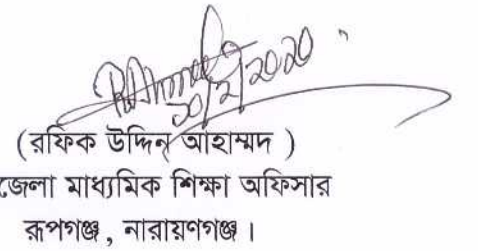 ২০/২/২০২০
(রফিক উদ্দিন আহাম্মদ )
জেলা মাধ্যমিক শিক্ষা অফিসার
রূপগঞ্জ , নারায়ণগঞ্জ ।